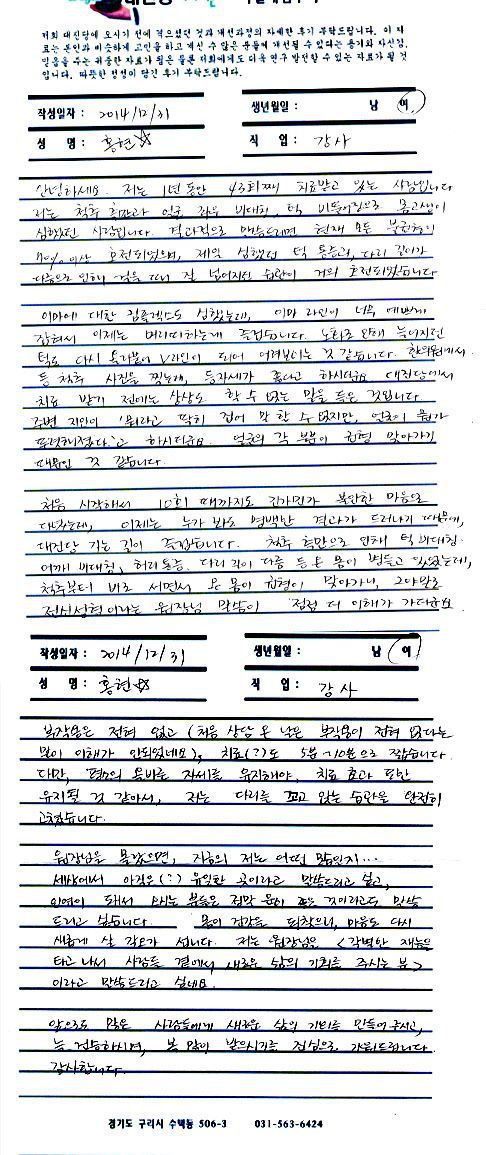 저희 대진당에 오시기 전에 적으셨던 것과 개선과정의 자세한 후기 부탁드립니다. 이 자
료는 본인과 비슷하게 고민을 하고 계신 수 많은 분들에 개선될 수 있다는 용기와 자신감,
믿음을 주는 귀중한 자료가 됨은 물론 저희에게도 더욱 연구 발전할 수 있는 자료가 될 것
입니다. 따뜻한 정성이 담긴 후기 부탁드립니다.
작성일자 : 2014/12/31 생년월일 : 남 여
성 명 : 홍현☆ 직 업 : 강사
안녕하세요. 저는 1년 동안 43회째 치료받고 있는 사람입니다
저는 척추 측만과 얼굴 좌우 비대칭, 턱 비뚤어짐으로 몸고생이
심했던 사람입니다. 결과적으로 말씀드리면 현재 모든 불편함이
70% 이상 호전되었으며, 제일 심했던 턱 통증과, 다리 길이가
다름으로 인해 걸을 때 잘 넘어지던 습관이 거의 호전되었습니다
이마에 대한 컴플렉스도 심했는데, 이마 라인이 너무 예쁘게
잡혀서 이제는 머리띠하는게 즐겁습니다. 노화로 인해 늘어지던
턱도 다시 올라붙어 V라인이 되어 어려보이는 것 같습니다. 한의원에서
등 척추 사진을 찍는데, 등자세가 좋다고 하시더군요 대진당에서
치료 받기 전에는 상상도 할 수 없는 말을 들은 것입니다.
주변 지인이 '뭐라고 딱히 집어 말 할 수 없지만, 얼굴이 뭔가
또렷해졌다.'고 하시더군요. 얼굴의 각 부분이 균형 맞아가기
때문인 것 같습니다.
처음 시작해서 10회 때까지도 긴가민가 불안한 마음으로
다녔는데, 이제는 누가 봐도 명백한 결과가 드러나기 때문에,
대진당 가는 길이 즐겁습니다. 척추 측만으로 인해 턱 비대칭,
어깨 비대칭, 허리통증, 다리 길이 다름 등 온 몸이 병들고 있었는데,
척추부터 바로 서면서 온 몸이 균형이 맞아가니, 그야말로
전신성형이라는 원장님 말씀이 점점 더 이해가 가더군요
작성일자 : 2014/12/31 생년월일 : 남 여
성 명 : 홍현☆ 직 업 : 강사
부작용은 전혀 없고 (처음 상담 온 날은 부작용이 전혀 없다는
말이 이해가 안되었네요), 치료(?)도 5분~10분으로 짧습니다.
다만, 평소의 올바른 자세를 유지해야, 치료 효과 또한
유지될 것 같아서, 저는 다리를 꼬고 앉는 습관을 완전히
고쳤습니다.
원장님을 몰랐으면, 지금의 저는 어떤 모습일지...
세상에서 아직은(?) 유일한 곳이라고 말씀드리고 싶고,
인연이 돼서 오시는 분들은 정말 운이 좋은 것이라고도 말씀
드리고 싶습니다. 몸이 건강을 되찾으니, 마음도 다시
새롭게 살 각오가 섭니다. 저는 원장님은 <각별한 재능을
타고 나서 사람들 곁에서 새로운 삶의 기회를 주시는 분>
이라고 말씀드리고 싶네요.
앞으로도 많은 사람들에게 새로운 삶의 기회를 만들어 주시고,
늘 건승하시며, 복 많이 받으시기를 진심으로 기원드립니다.
감사합니다.
경기도 구리시 수택동 506-3 031-563-6424